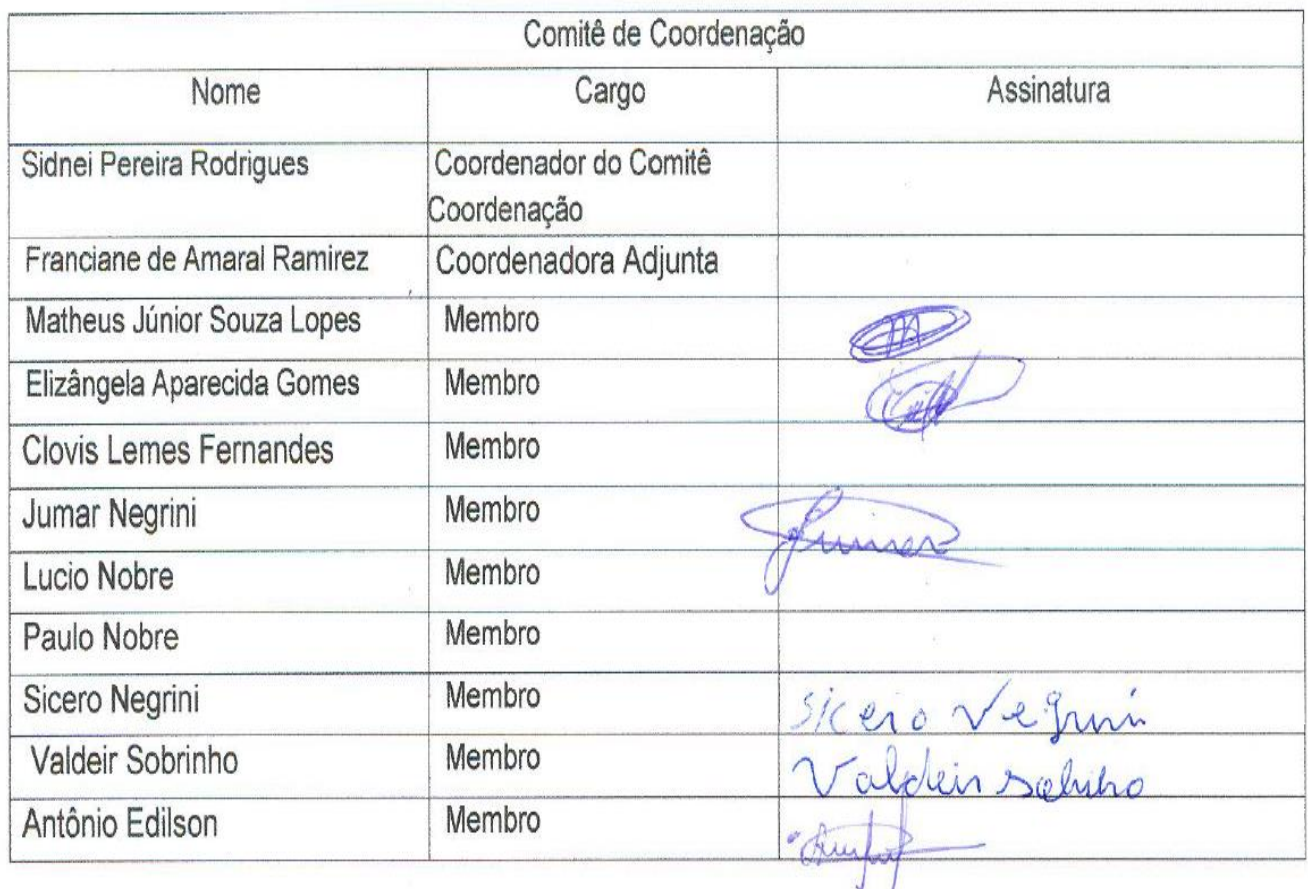 Comitê de Coordenação
Nome Cargo Assinatura
Sidnei Pereira Rodrigues Coordenador do Comitê
Coordenação
Franciane de Amaral Ramirez Coordenadora Adjunta
Matheus Júnior Souza Lopes Membro
Elizângela Aparecida Gomes Membro
Clovis Lemes Fernandes Membro
Jumar Negrini Membro
Lucio Nobre Membro
Paulo Nobre Membro
Sicero Negrini Membro Sicero
Valdeir Sobrinho Membro Valdeir
Antônio Edilson Membro